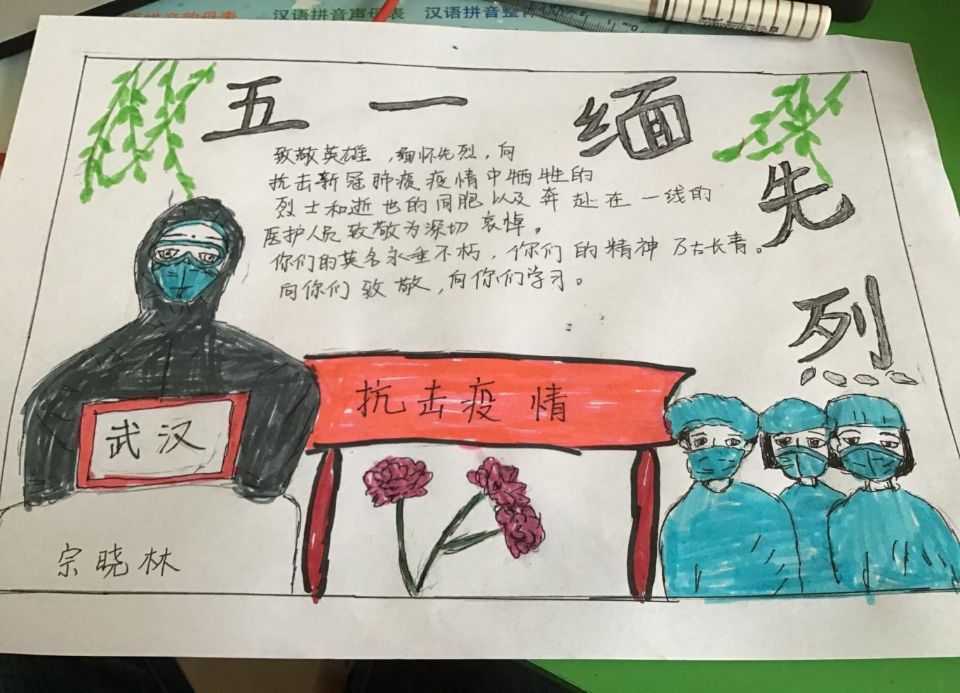 汉语拼音韵母表
汉语拼音声母表
汉语拼音整体
五一缅先烈
致敬英雄,缅怀先烈,向
抗击新冠肺疫疫情中牺牲的
烈士和逝也的同胞以及奔赴在一线的
医护人员致敬为深切哀悼。
你们的英名永垂不朽,你们的精神万古长青。
向你们致敬,向你们学习。
抗击疫情
武汉
宗晓林